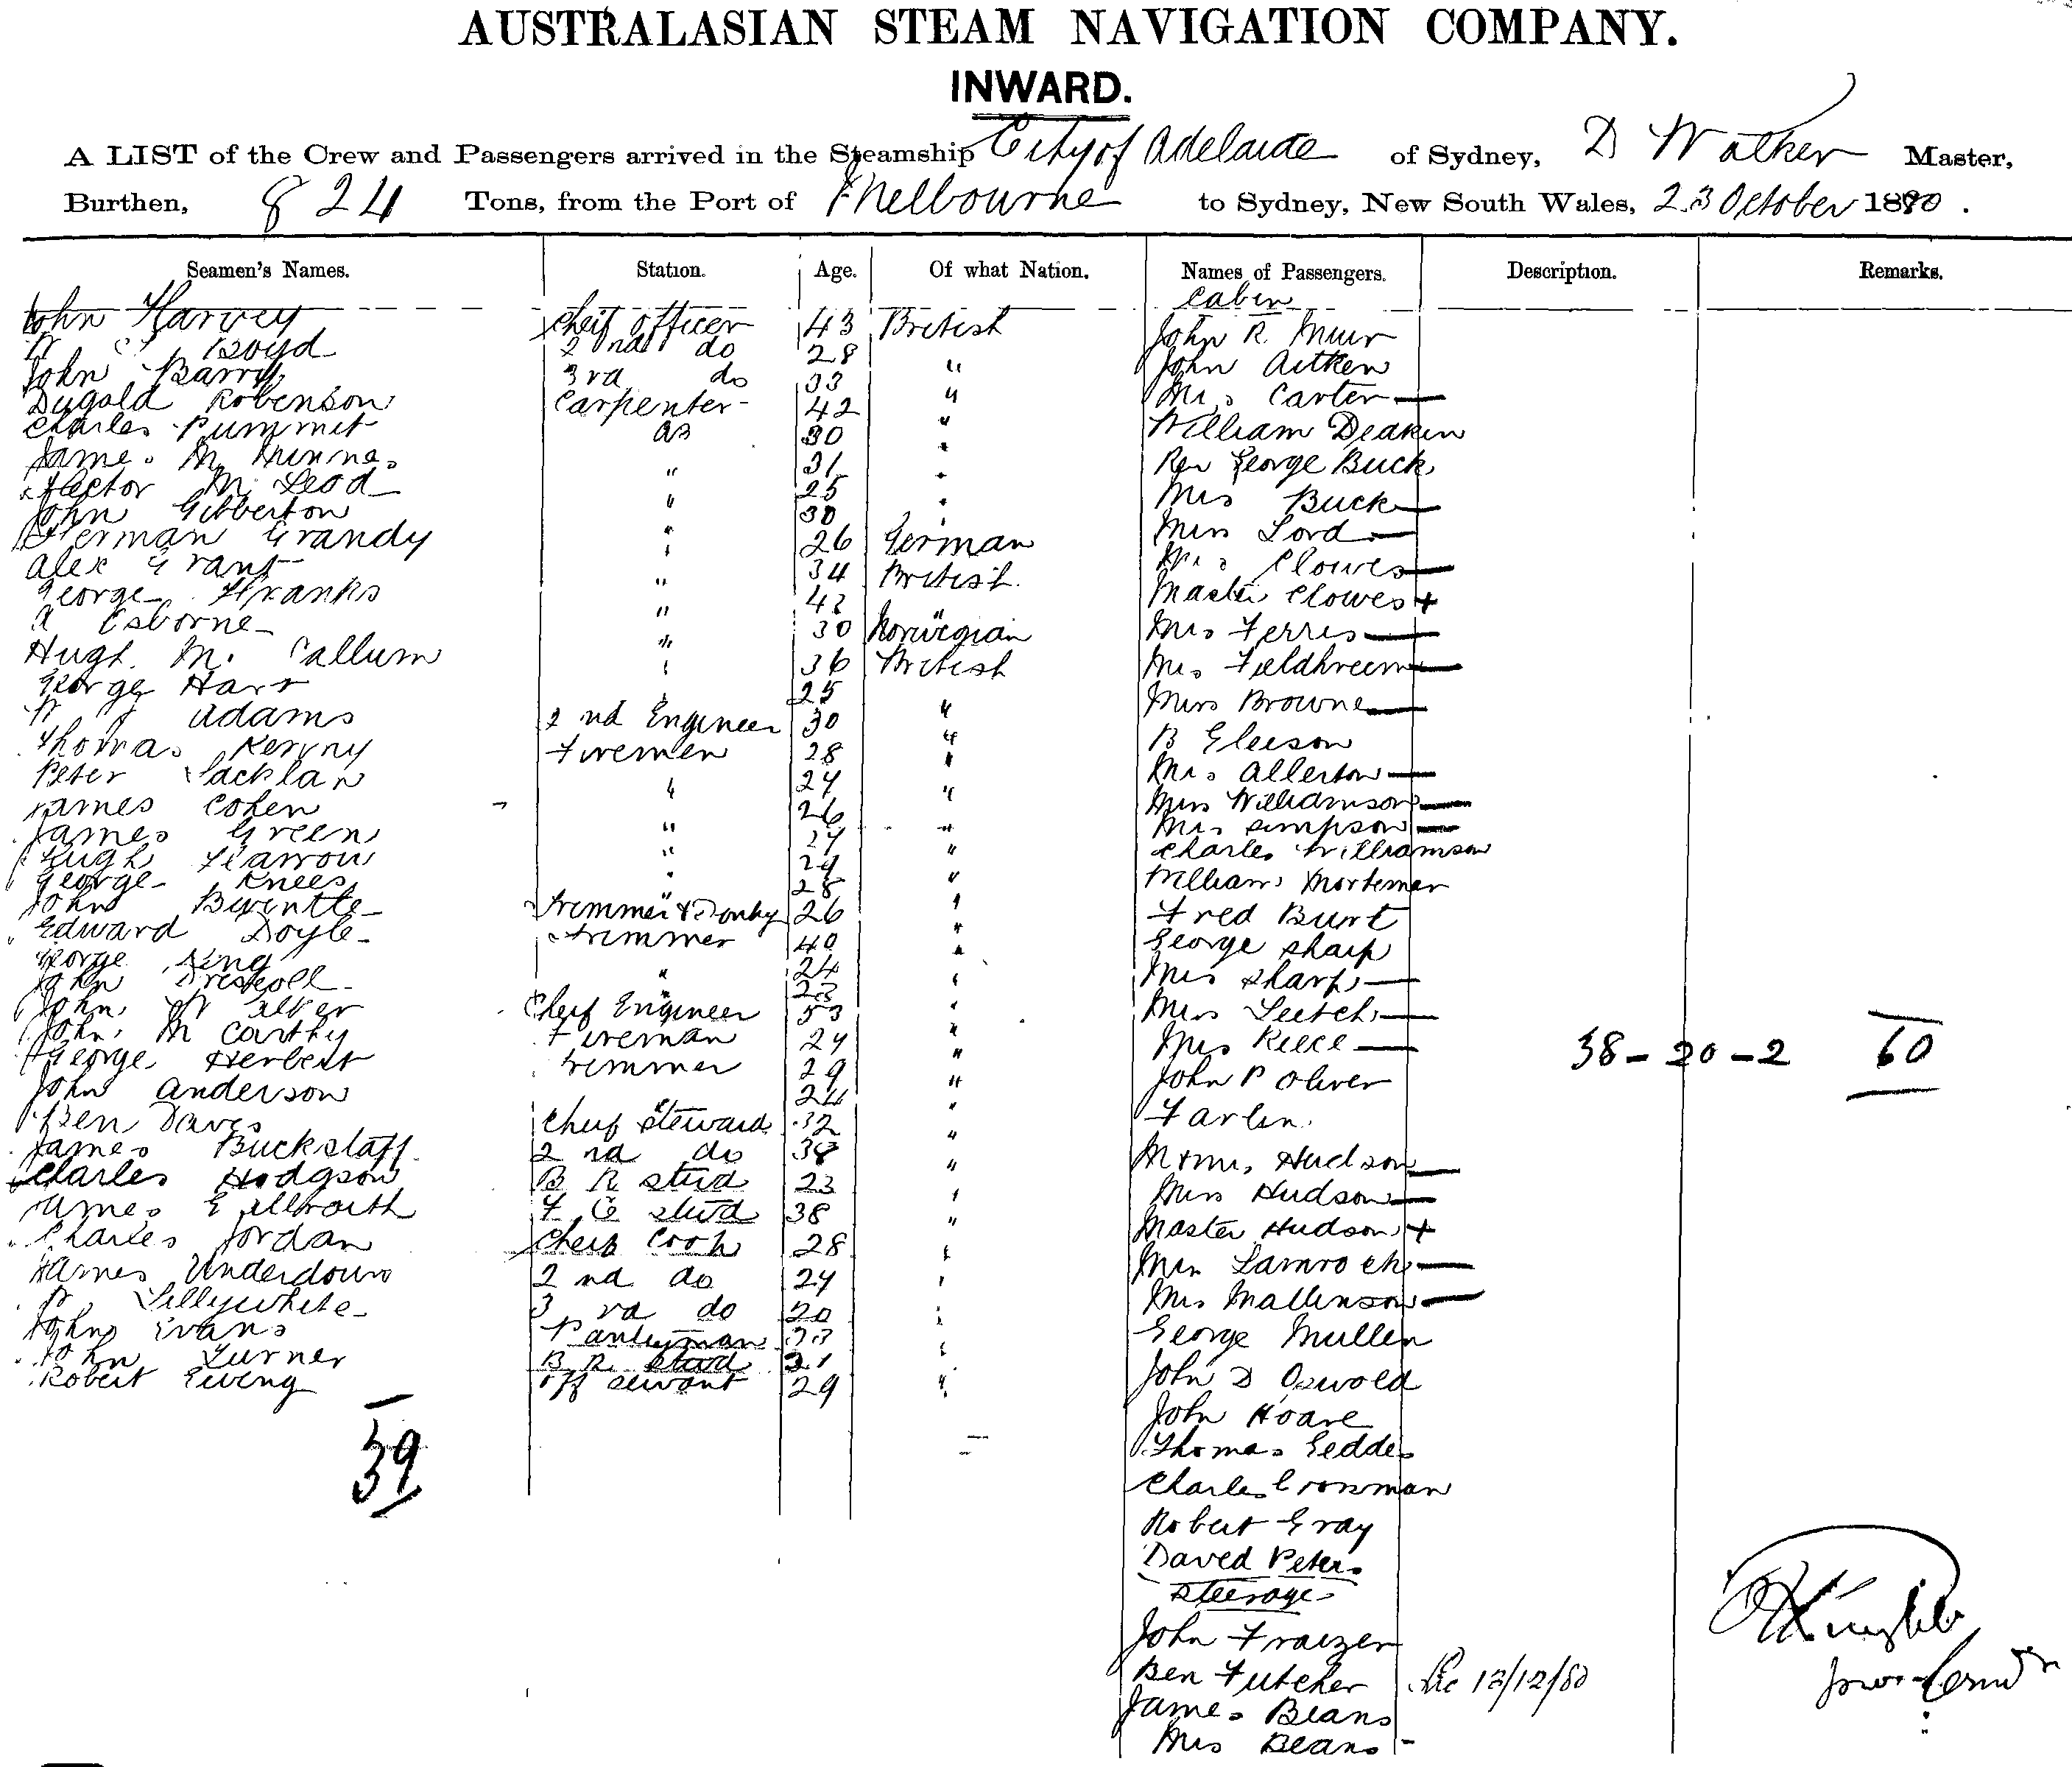 AUSTRALASIAN STEAM NAVIGATION COMPANY.
INWARD.
A LIST of the Crew and Passengers arrived in the Steamship City of Adelaide of Sydney, D Walker Master,
Burthen, 824 Tons, from the Port of Melbourne to Sydney, New South Wales, 23 October 1880.
Seamen's Names. Station. Age. Of what Nation. Names of Passengers. Description. Remarks.
Cabin
John Harvey Cheif Officer 43 British John R Muir
Boyd 2nd do 28 " John Aitken
John Barry 3rd do 33 " Mrs Carter —
Dugald Robenson Carpenter 42 " William Deaken
Charles Pummit AB 30 " Rev George Buck
James Mc Minnes " 31 " Mrs Buck —
Hector Mc Leod " 25 " Miss Lord —
John Gibberton " 30 " Mrs Clowes —
Herman Grandy " 26 German Master Clowes +
Alex Grant " 34 British Mrs Ferris —
George Franks " 42 "
A Esborne " 30 Norwegian Miss Browne —
Hugh Mc Callum " 36 British B Gleeson
George Hart " 25 Mrs Allerton —
Adams 2nd Engineer 30 " Miss Williamson —
Thomas Kenny Firemen 28 " Mrs Simpson —
Peter Lacklan " 27 " Charles Williamson
James Cohen 26 " William Mortemer
James Green " 27 " Fred Burt
Hugh Farrow " 29 " George Sharp
George Knees " 28 " Mrs Sharp —
John Trimmer & Donky 26 " Miss Leetch —
Edward Doyle Trimmer 40 " Mrs Reece —
George King 24 " John P Oliver
John Dreskoll " 23 " Farlin
John Walker Cheif Engineer 53 " Hudson —
John Mc Carthy Fireman 27 " Miss Hudson —
George Herbert Trimmer 29 " Master Hudson +
John Anderson " 24 " Lamroch —
Ben Daves Cheif Steward 32 " Mrs Mallinson —
James Buckstaff 2nd do 38 " George Mullen
Charles Hodgson B R Stwd 23 " John D Oswold
James Ellworth F C Stwd 38 " John Hoare
Charles Jordan Cheif Cook 28 " Thomas Geddes
James Underdown 2nd do 27 " Charles Crossman
Lillywhite 3rd do 20 " Robert Gray
John Evans Pantryman 23 " David Peters
John Turner B R Stwd 21 "
Robert Ewing Off Servant 29 "
39
38 - 20 - 2 60
Steerage
John Fraizer
Ben Futcher 12/12/80
James Beans
Mrs Beans -